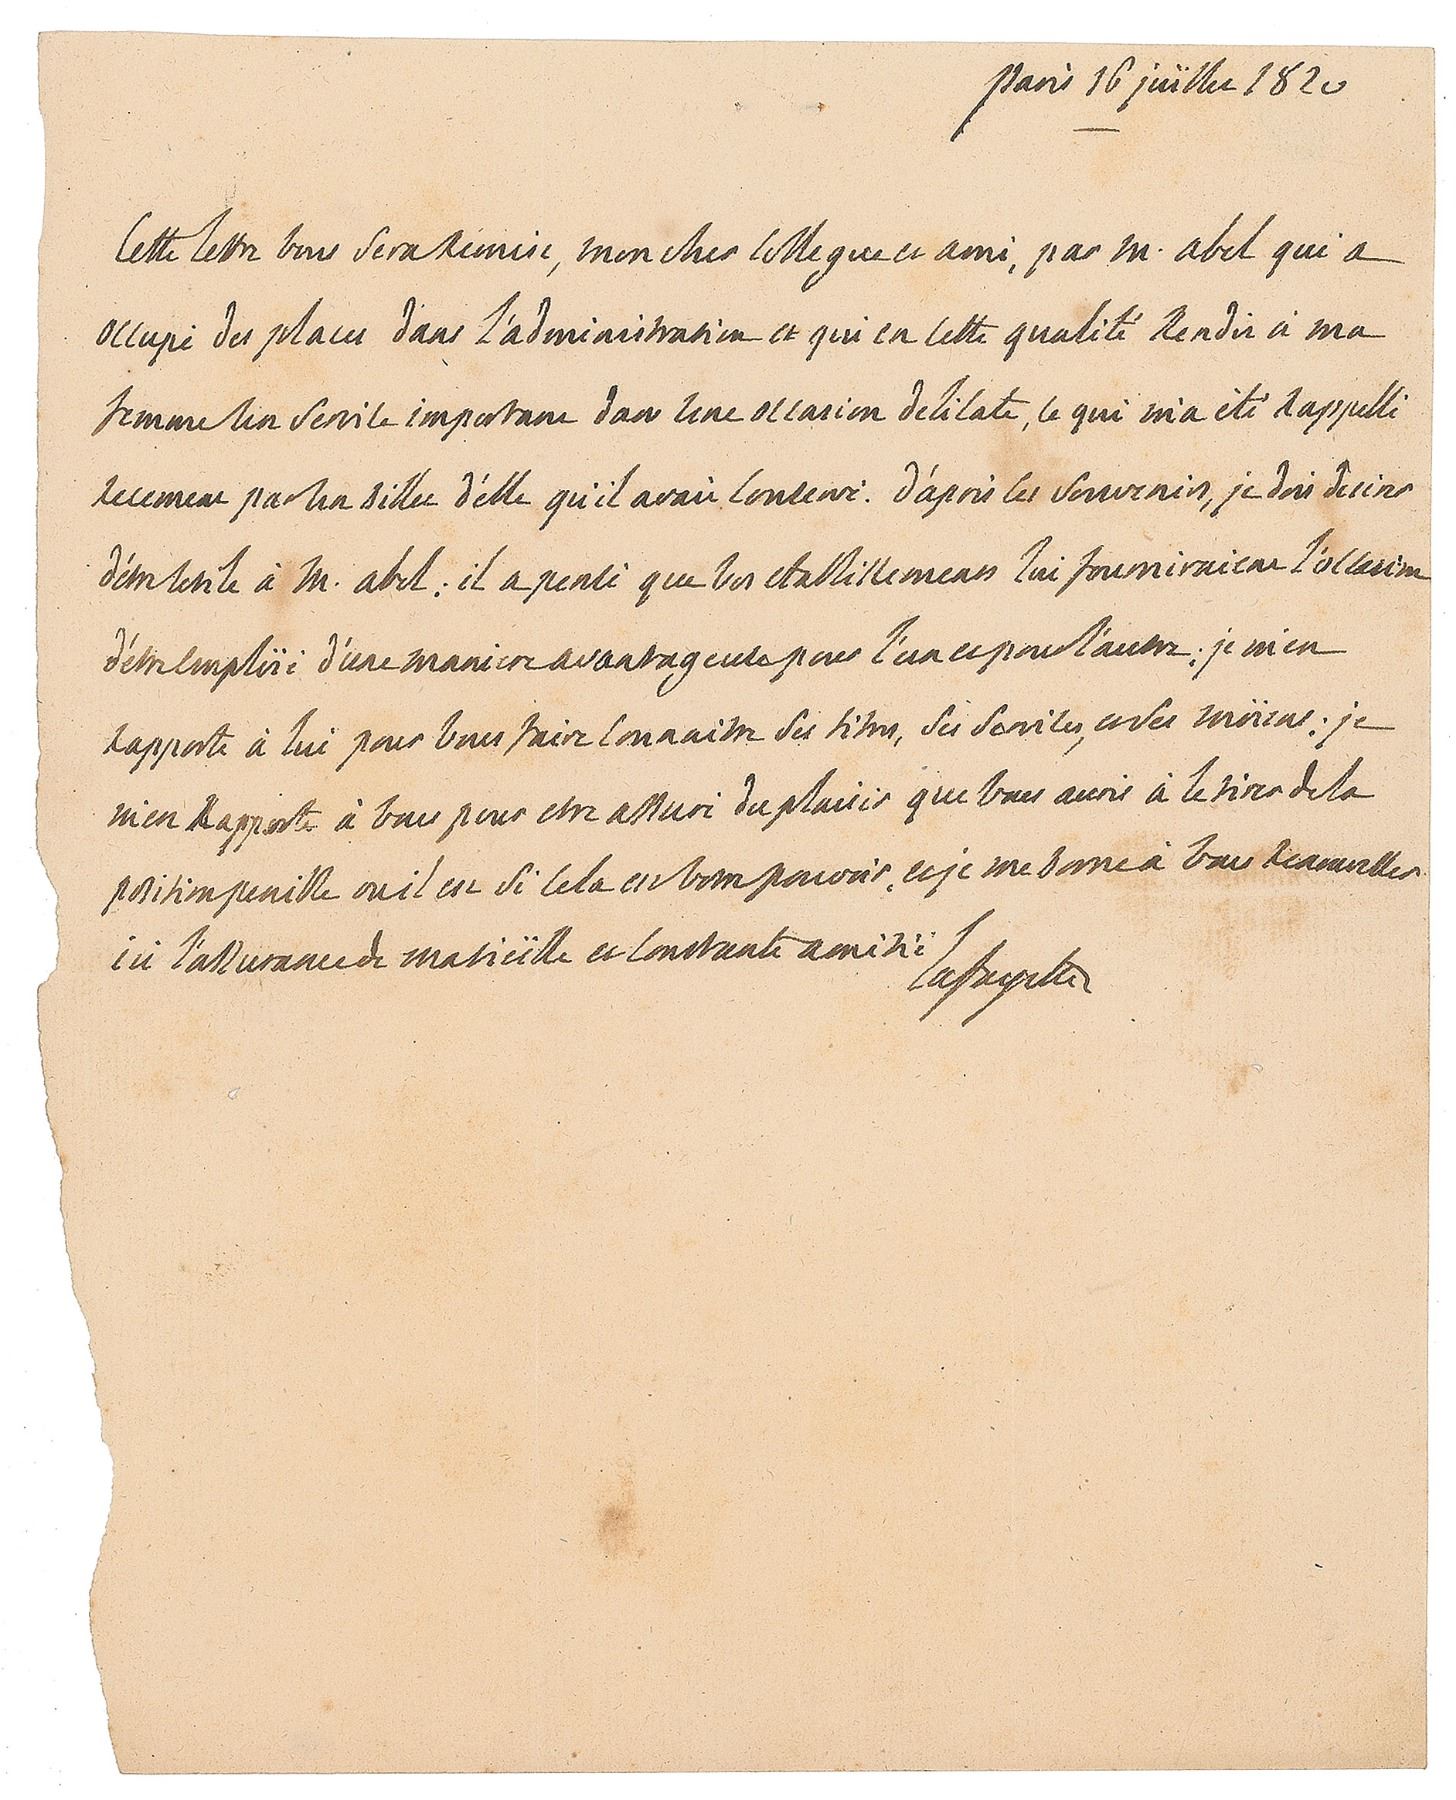 Paris 16 juïllet 1820
Cette lettre vous sera remise, mon cher collegue et ami, par m. abel qui a
occupé des places dans l'administration et qui en cette qualité rendit à ma
femme un service important dans une occasion delicate, ce qui m'a été rappellé
recement par un billet d'elle qu'il avait conservé. d'après ces souvenirs, je dois desirer
d'être utile à m. abel; il a pensé que vos etablissements lui fourniraient l'occasion
d'être emploïé d'une maniere avantageuse pour l'un et pour l'autre; je m'en
rapporte à lui pour vous faire connaitre ses titres, ses services, et ses moïens; je
m'en rapporte à vous pour etre assuré du plaisir que vous aurés à le tirer de la
position penible ou il est si cela est en votre pouvoir, et je me borne à vous renouveller
ici l'assurance de ma vieïlle et constante amitié
Lafayette